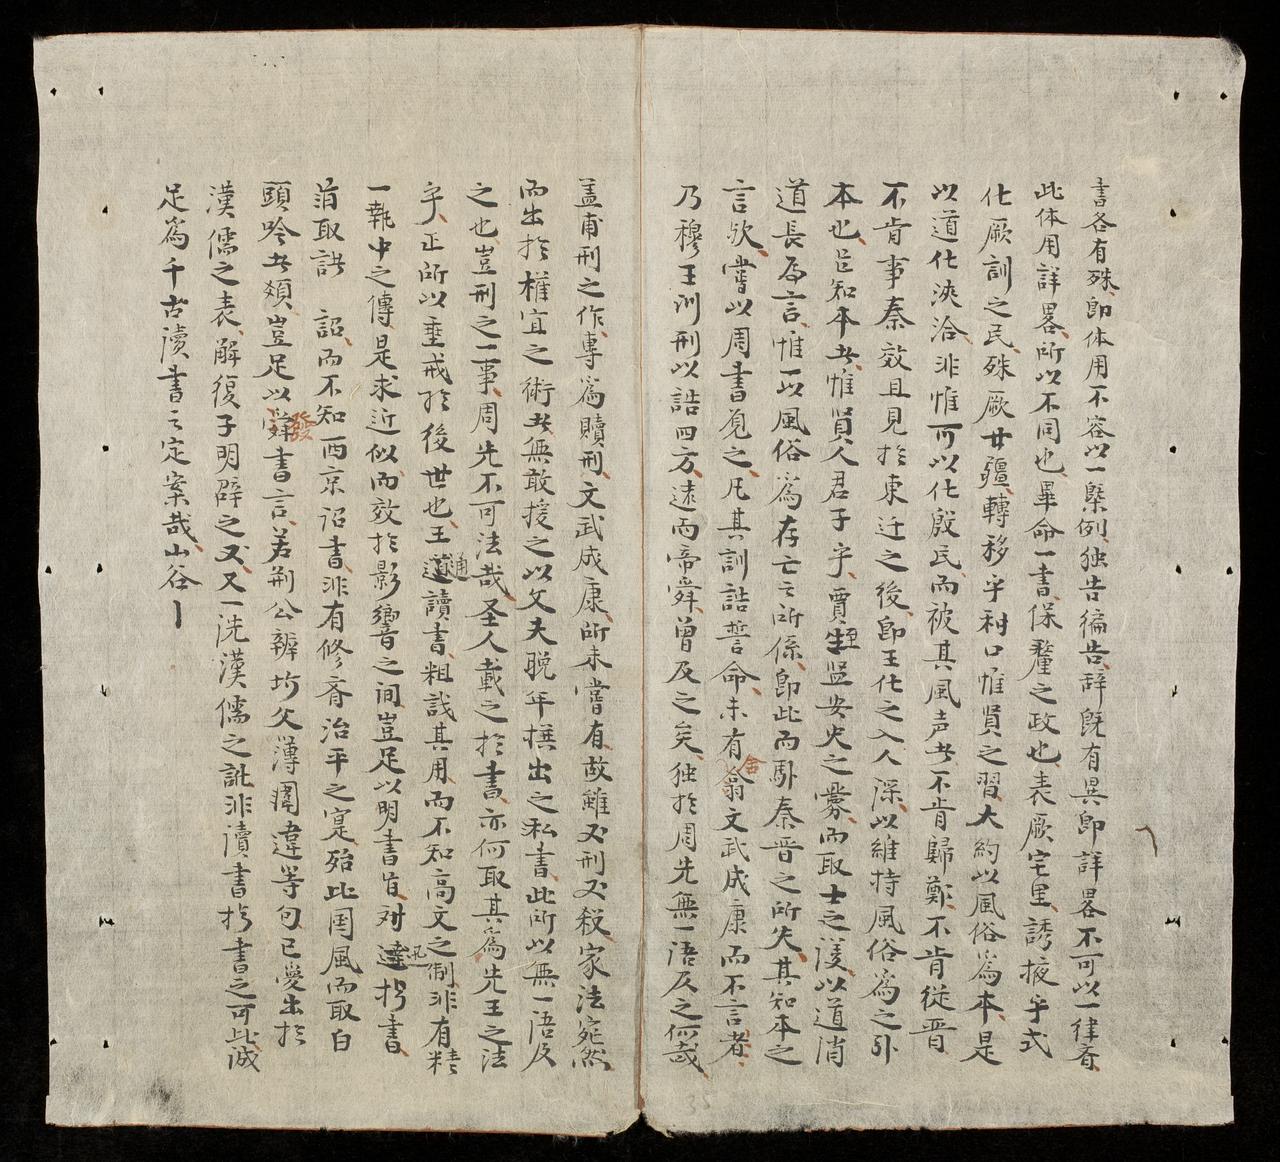 書各有殊即体用不容以一槩例独告徧告辞既有異即詳畧不可以一律斉
此体用詳畧所以不同也畢命一書保釐之政也表厥宅里誘掖乎式
化厥訓之民殊厥井疆轉移乎利口惟賢之習大約以風俗為本是
以道化浹洽非惟可以化殷民而被其風声者不肯歸鄭不肯従晋
不肯事秦效且見於東迁之後即王化之入人深以維持風俗為之卧
本也足知本者惟賢人君子乎賈生至望安史之釁而取士之護以道消
道長為言惟一以風俗為存亡之所係即此而卧秦晋之所失其知本之
言欤嘗以周書覓之凡其訓誥誓命未有舍文武成康而不言者
乃穆王訓刑以誥四方遠而帝舜曾及之矣独於周先無一語及之何哉
盖甫刑之作專為贖刑文武成康所未嘗有故雖刑殺家法宛然
而出於權宜之術者無敢援之以父夫晚年撰出之私書此所以無一語及
之也豈刑之一事周先不可法哉圣人載之於書亦何取其為先王之法
乎正所以垂戒於後世也王通讀書粗識其用而不知高文之制非有精
一執中之傳是求近似而效於影響之间豈足以明書旨對達孔抄書
旨取訣 詔而不知西京诏書非有修斉治平之寔殆此国風而取白
頭吟者類豈足以發書言若荆公辨圻父薄違等句已愛出於
漢儒之表解復子明辟之又一洗漢儒之訛非讀書抄書之可此诚
足為千古讀書之定案哉山谷